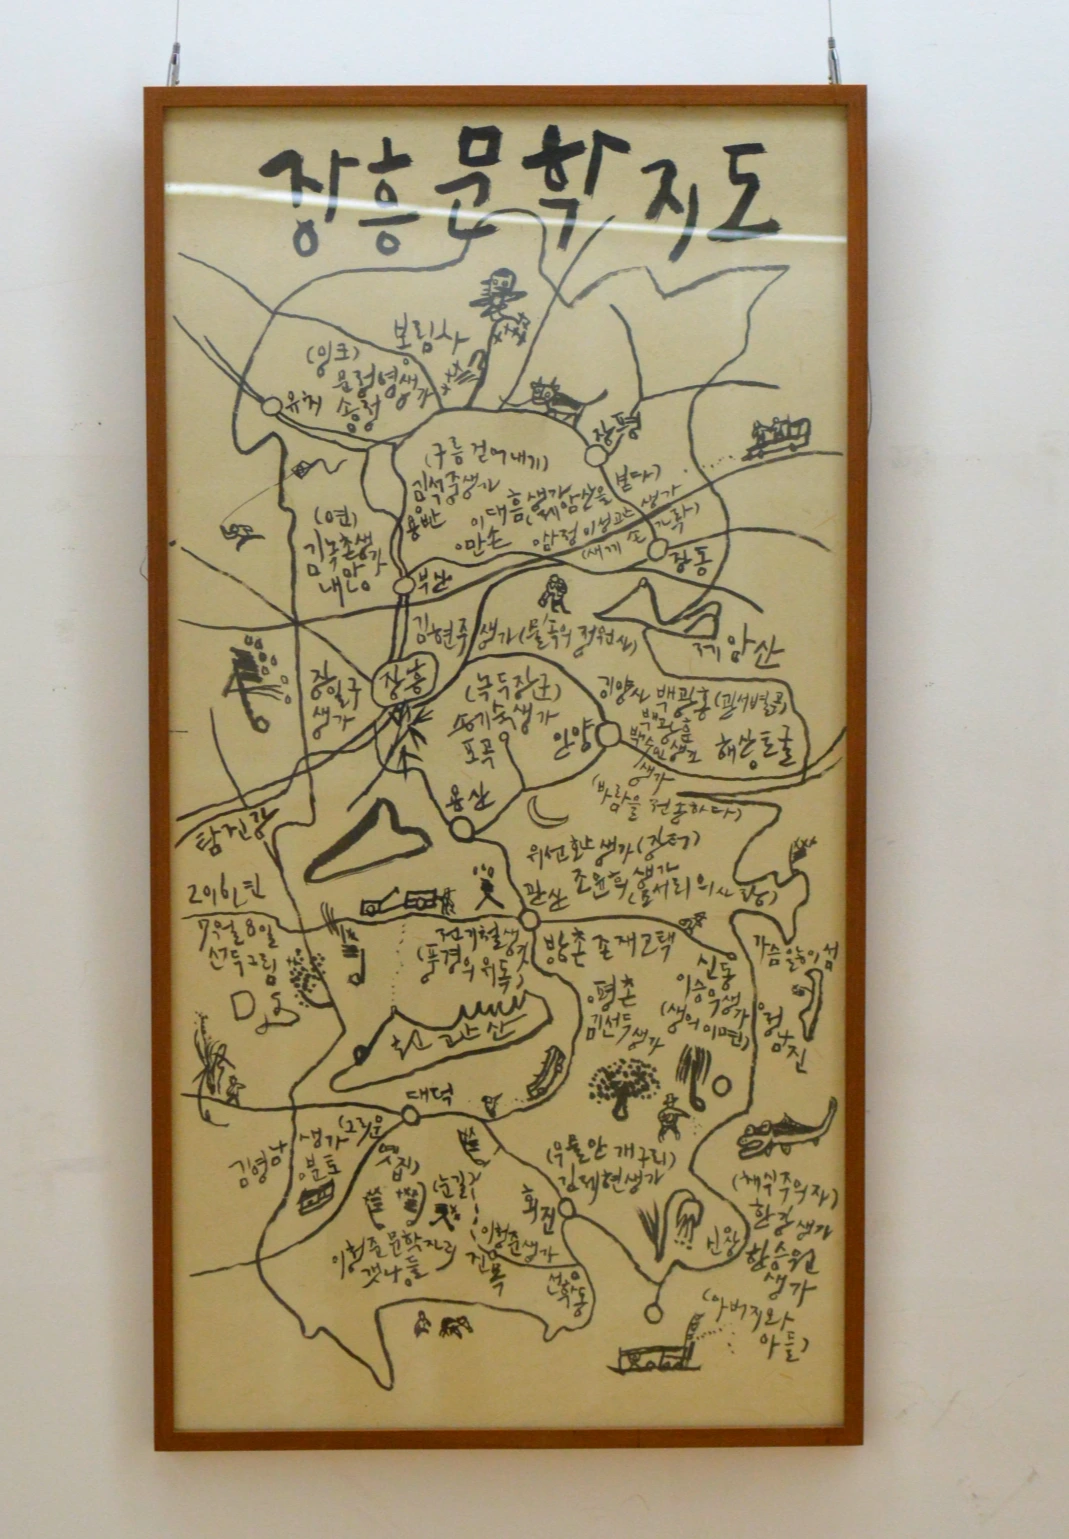 장흥문학지도
보림사
(잉크)
문정영생가
송정
유치
장평
(구름 걷어내기)
김석중생가
용반
이대흠생가
만손
제암산을 본다)
삼정 이성관 생가
(새게 손 가락)
장동
(연)
김녹촌생가
내안
부산
김현주생가(물속의 정원사)
제암산
장흥
장일구
생가
(녹두장군)
송기숙생가
포곡
안양
기양사 백광홍(관서별곡)
백광훈
백수인생가
생가
(바람을 전송하다)
해산토굴
용산
탐진강
위선환생가(장터)
조윤희생가
관산
2016년
7월 8일
선두그림
전기철생가
(풍경의 위독)
방촌 존재고택
가슴앓이섬
신동
이승우생가
(생의 이면)
정남진
평촌
김선두
생가
천관산
대덕
김영남
생가
분토
(그리운
옛집)
(우물안 개구리)
김제현생가
(눈길)
회진
이청준생가
진목
이청준문학자리
갯나들
선학동
신상
(채식주의자)
한강생가
한승원
생가
(아버지와
아들)